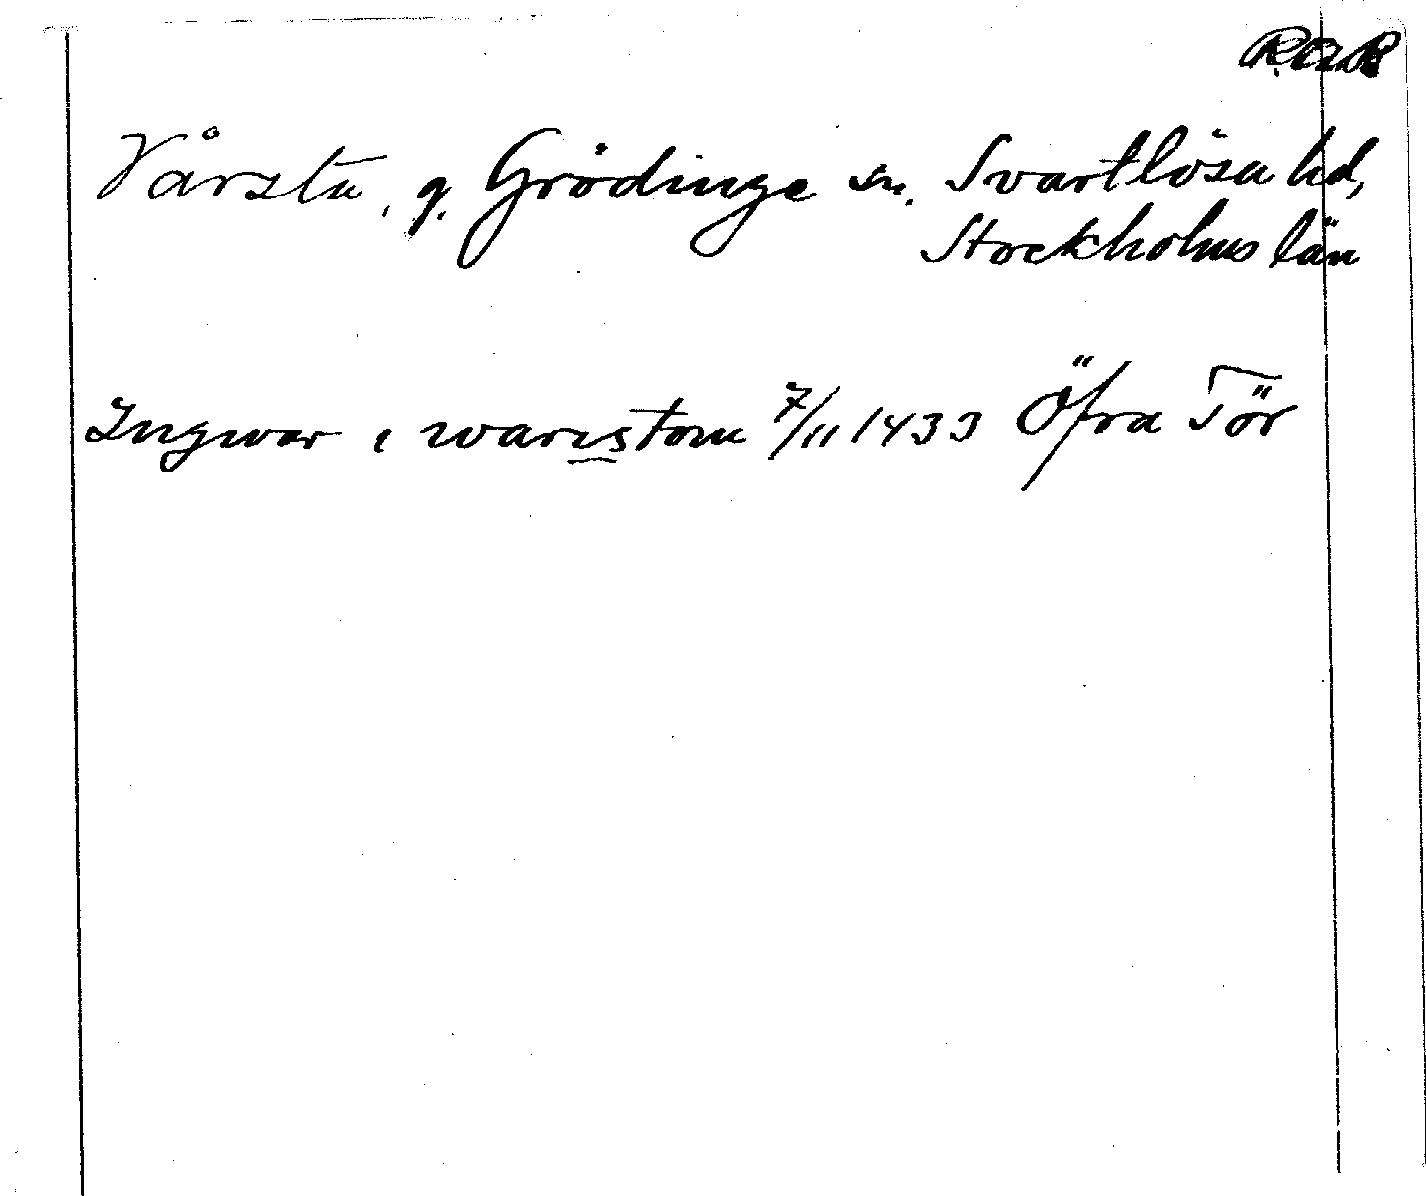 R.A.P.
Vårsta, g. Grödinge sn. Svartlösa hd,
Stockholms län
Ingwar i warистom 7/11 1433 Öfra Tör